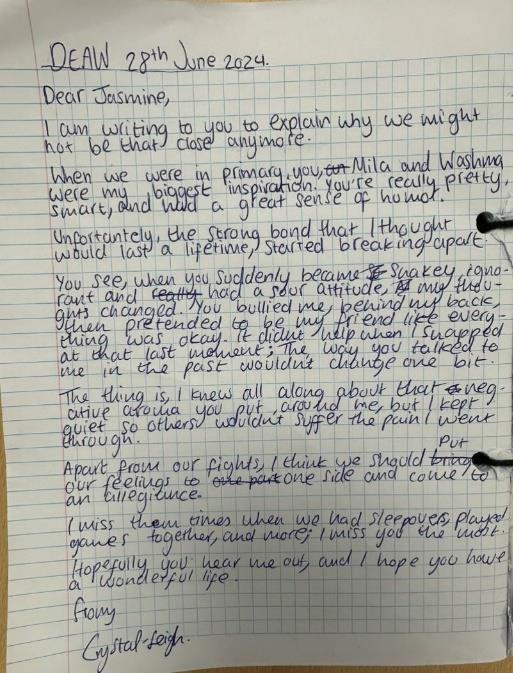 DEAW 28th June 2024.
Dear Jasmine,
I am writing to you to explain why we might
not be that close anymore.
When we were in primary, you, Mila and Washma
were my biggest inspiration. You're really pretty,
smart, and had a great sense of humor.
Unfortantely, the strong bond that I thought
would last a lifetime, started breaking apart.
You see, when you suddenly became snakey, igno-
rant and really had a sour attitude, my thou-
ghts changed. You bullied me, behind my back,
then pretended to be my friend like every-
thing was okay. It didn't help when I snapped
at that last moment; The way you talked to
me in the past wouldn't change one bit.
The thing is, I knew all along about that neg-
ative aroma you put around me, but I kept
quiet so others wouldn't suffer the pain I went
through.
Put
Apart from our fights, I think we should bring
our feelings to one part one side and come to
an allegiance.
I miss them times when we had sleepovers, played
games together, and more; I miss you the most.
Hopefully you hear me out, and I hope you have
a wonderful life.
from
Crystal-Leigh.